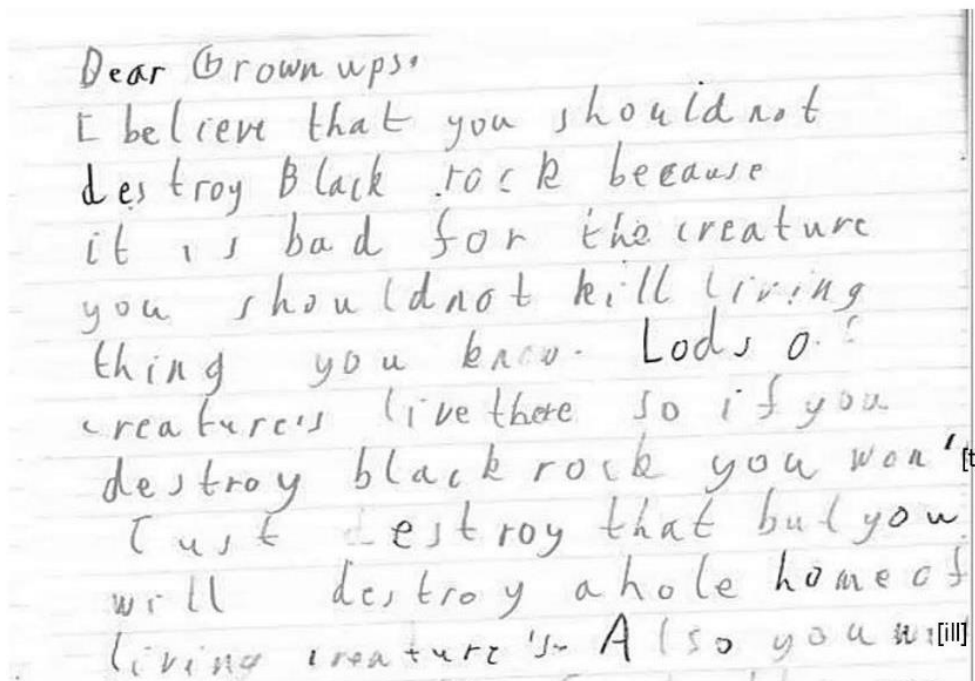 Dear Grown ups.
I believe that you should not
destroy Black rock because
it is bad for the creature
you shouldnot kill living
thing you know. Lods of
creature's live there so if you
destroy black rock you won'[t
Just destroy that but you
will destroy a hole home of
living creature's. Also you wi[ill]